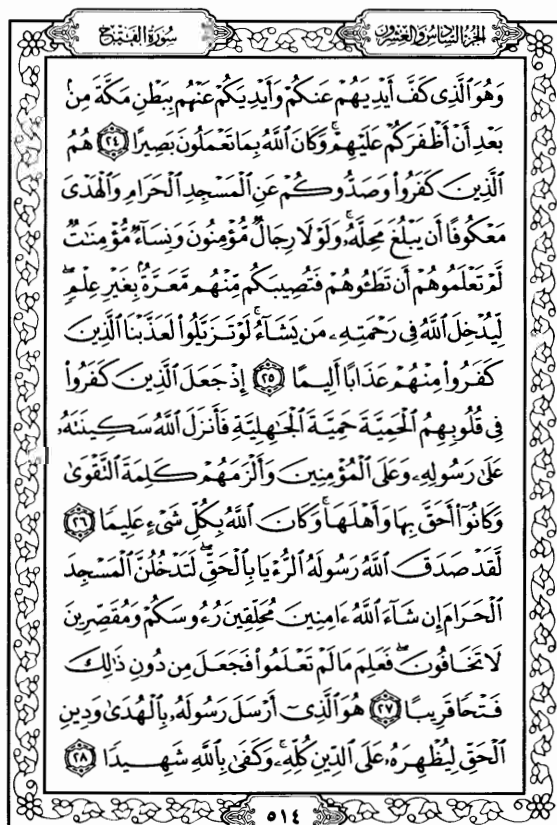 سُورَةُ الفَتۡحِ
الجُزءُ السَّادِسُ وَالعِشۡرُونَ
وَهُوَ ٱلَّذِى كَفَّ أَيۡدِيَهُمۡ عَنكُمۡ وَأَيۡدِيَكُمۡ عَنۡهُم بِبَطۡنِ مَكَّةَ مِنۢ
بَعۡدِ أَنۡ أَظۡفَرَكُمۡ عَلَيۡهِمۡۚ وَكَانَ ٱللَّهُ بِمَا تَعۡمَلُونَ بَصِيرًا ٢٤ هُمُ
ٱلَّذِينَ كَفَرُواْ وَصَدُّوكُمۡ عَنِ ٱلۡمَسۡجِدِ ٱلۡحَرَامِ وَٱلۡهَدۡىَ
مَعۡكُوفًا أَن يَبۡلُغَ مَحِلَّهُۥۚ وَلَوۡلَا رِجَالٌ مُّؤۡمِنُونَ وَنِسَآءٌ مُّؤۡمِنَٰتٌ
لَّمۡ تَعۡلَمُوهُمۡ أَن تَطَـُٔوهُمۡ فَتُصِيبَكُم مِّنۡهُم مَّعَرَّةُۢ بِغَيۡرِ عِلۡمٍۖ
لِّيُدۡخِلَ ٱللَّهُ فِى رَحۡمَتِهِۦ مَن يَشَآءُۚ لَوۡ تَزَيَّلُواْ لَعَذَّبۡنَا ٱلَّذِينَ
كَفَرُواْ مِنۡهُمۡ عَذَابًا أَلِيمًا ٢٥ إِذۡ جَعَلَ ٱلَّذِينَ كَفَرُواْ
فِى قُلُوبِهِمُ ٱلۡحَمِيَّةَ حَمِيَّةَ ٱلۡجَٰهِلِيَّةِ فَأَنزَلَ ٱللَّهُ سَكِينَتَهُۥ
عَلَىٰ رَسُولِهِۦ وَعَلَى ٱلۡمُؤۡمِنِينَ وَأَلۡزَمَهُمۡ كَلِمَةَ ٱلتَّقۡوَىٰ
وَكَانُوٓاْ أَحَقَّ بِهَا وَأَهۡلَهَاۚ وَكَانَ ٱللَّهُ بِكُلِّ شَىۡءٍ عَلِيمًا ٢٦
لَّقَدۡ صَدَقَ ٱللَّهُ رَسُولَهُ ٱلرُّءۡيَا بِٱلۡحَقِّۖ لَتَدۡخُلُنَّ ٱلۡمَسۡجِدَ
ٱلۡحَرَامَ إِن شَآءَ ٱللَّهُ ءَامِنِينَ مُحَلِّقِينَ رُءُوسَكُمۡ وَمُقَصِّرِينَ
لَا تَخَافُونَۖ فَعَلِمَ مَا لَمۡ تَعۡلَمُواْ فَجَعَلَ مِن دُونِ ذَٰلِكَ
فَتۡحًا قَرِيبًا ٢٧ هُوَ ٱلَّذِىٓ أَرۡسَلَ رَسُولَهُۥ بِٱلۡهُدَىٰ وَدِينِ
ٱلۡحَقِّ لِيُظۡهِرَهُۥ عَلَى ٱلدِّينِ كُلِّهِۦۚ وَكَفَىٰ بِٱللَّهِ شَهِيدًا ٢٨
٥١٤